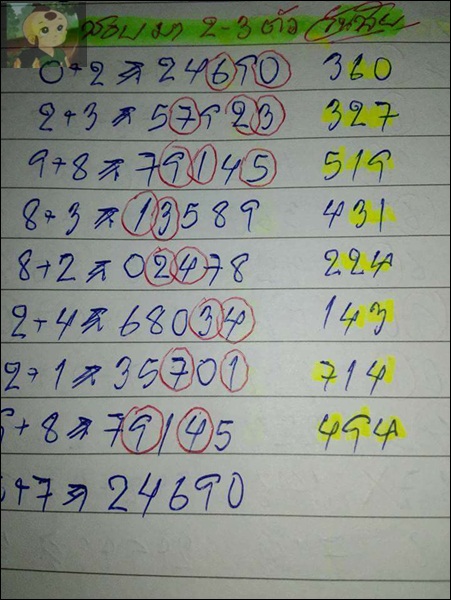 ชอบมา 2-3 ตัว
0+2 ⇒ 24690 360
2+3 ⇒ 57923 327
9+8 ⇒ 79145 519
8+3 ⇒ 13589 431
8+2 ⇒ 02478 224
2+4 ⇒ 68034 143
2+1 ⇒ 35701 714
+8 ⇒ 79145 494
+7 ⇒ 24690